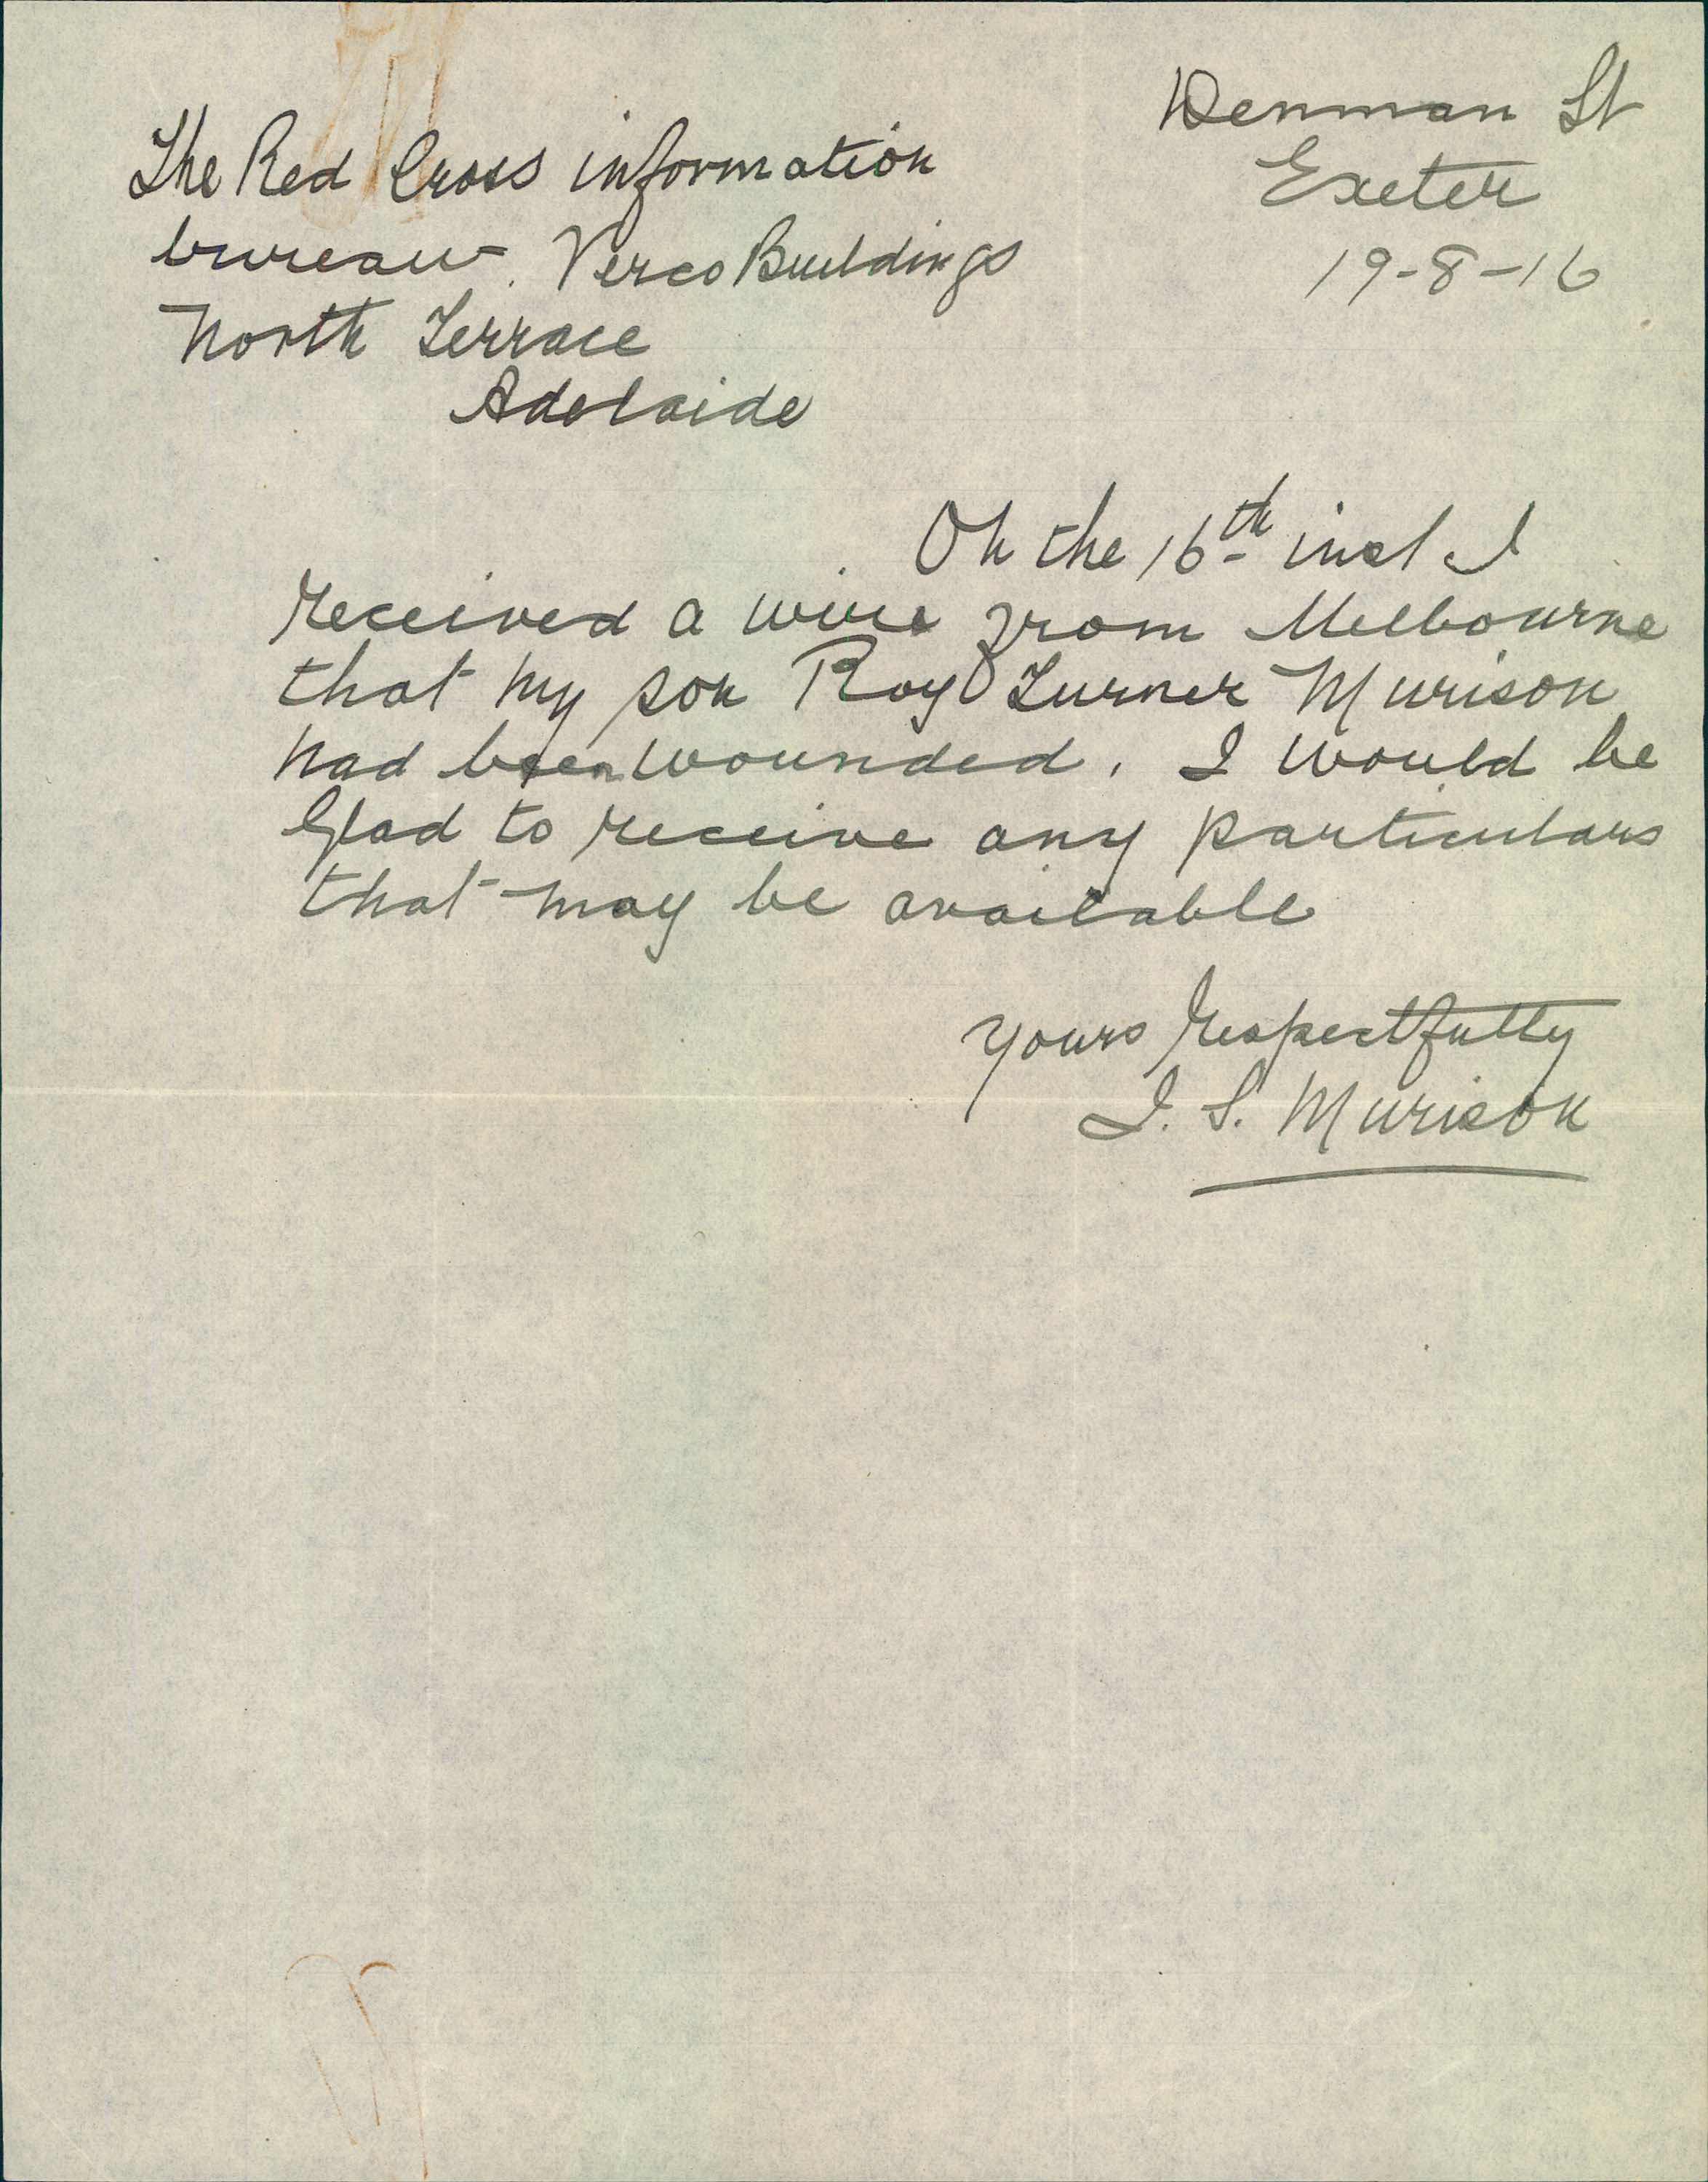 Denman St
Exeter
19-8-16
The Red Cross information
bureau. Verco Buildings
North Terrace
Adelaide
On the 16th inst I
received a wire from Melbourne
that my son Roy Turner Murison
had been wounded. I would be
Glad to receive any particulars
that may be available
Yours respectfully
J. S. Murison